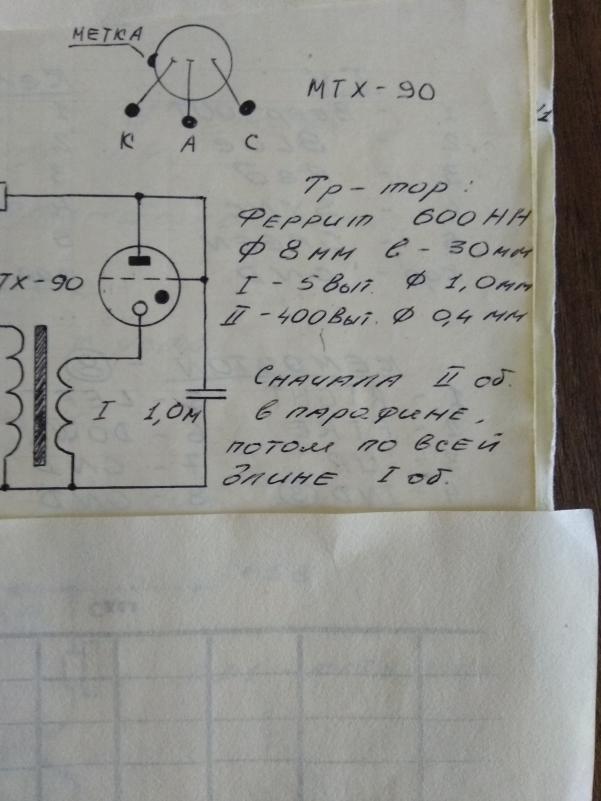 МЕТКА
К А С
МТХ-90
Тр-тор:
Феррит 600НН
Ф 8мм ℓ-30мм
I - 5 Выт. Ф 1,0мм
II - 400 Выт. Ф 0,4 мм
ТХ-90
I 1,0м
Сначала II об.
в парафине,
потом по всей
длине I об.